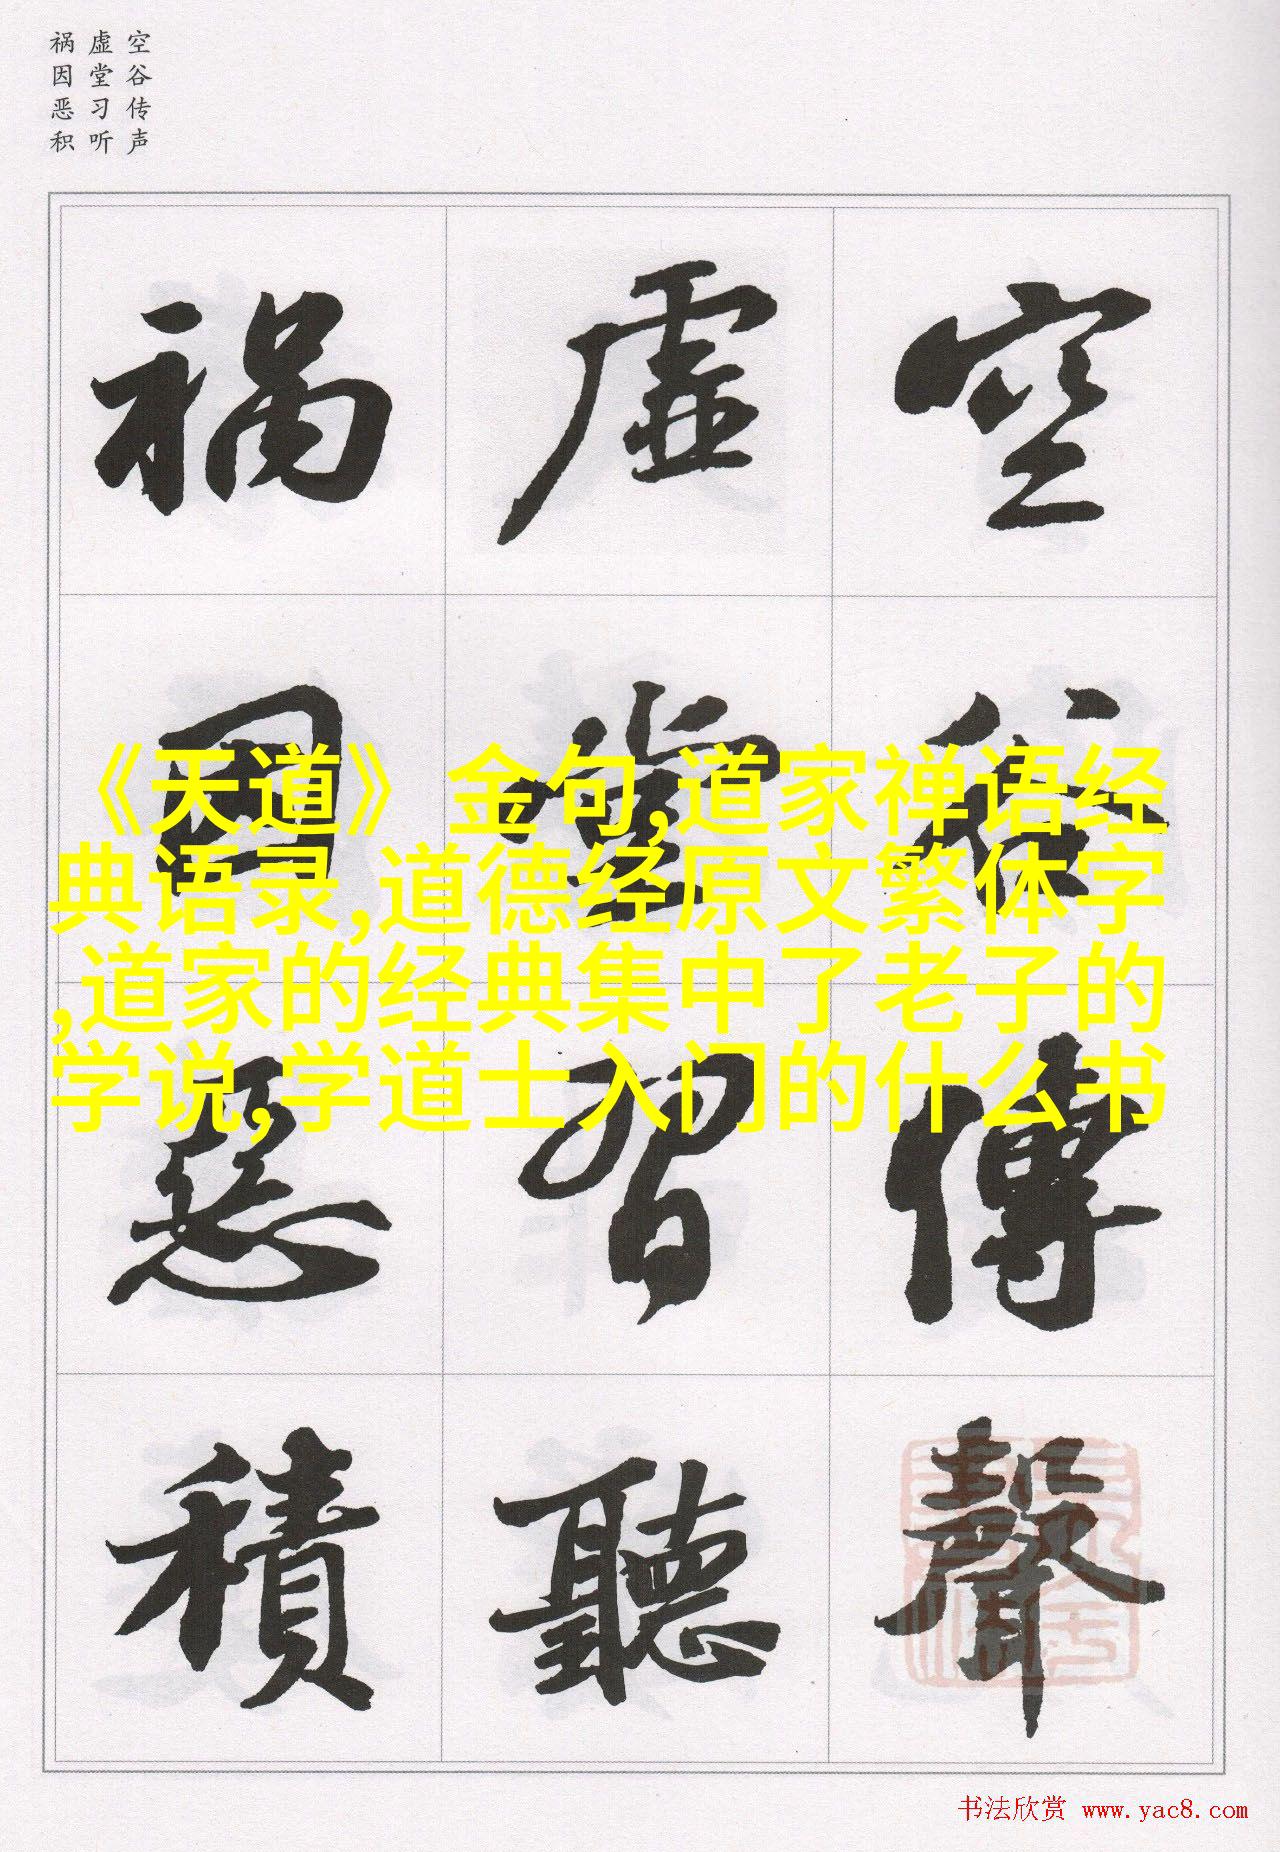 空谷传声
虚堂习听
祸因恶积
空谷傳聲
虛堂習聽
禍因惡積
《天道》金句,道家禅语经
典语录,道德经原文繁体字
,道家的经典集中了老子的
学说,学道士入门的什么书
书法欣赏 www.yac8.com